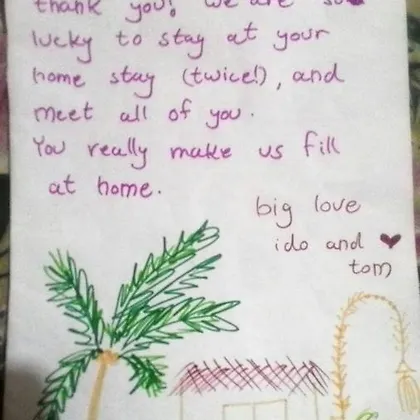 thank you! we are so
lucky to stay at your
home stay (twice!), and
meet all of you.
You really make us fill
at home.
big love
ido and ♥
tom